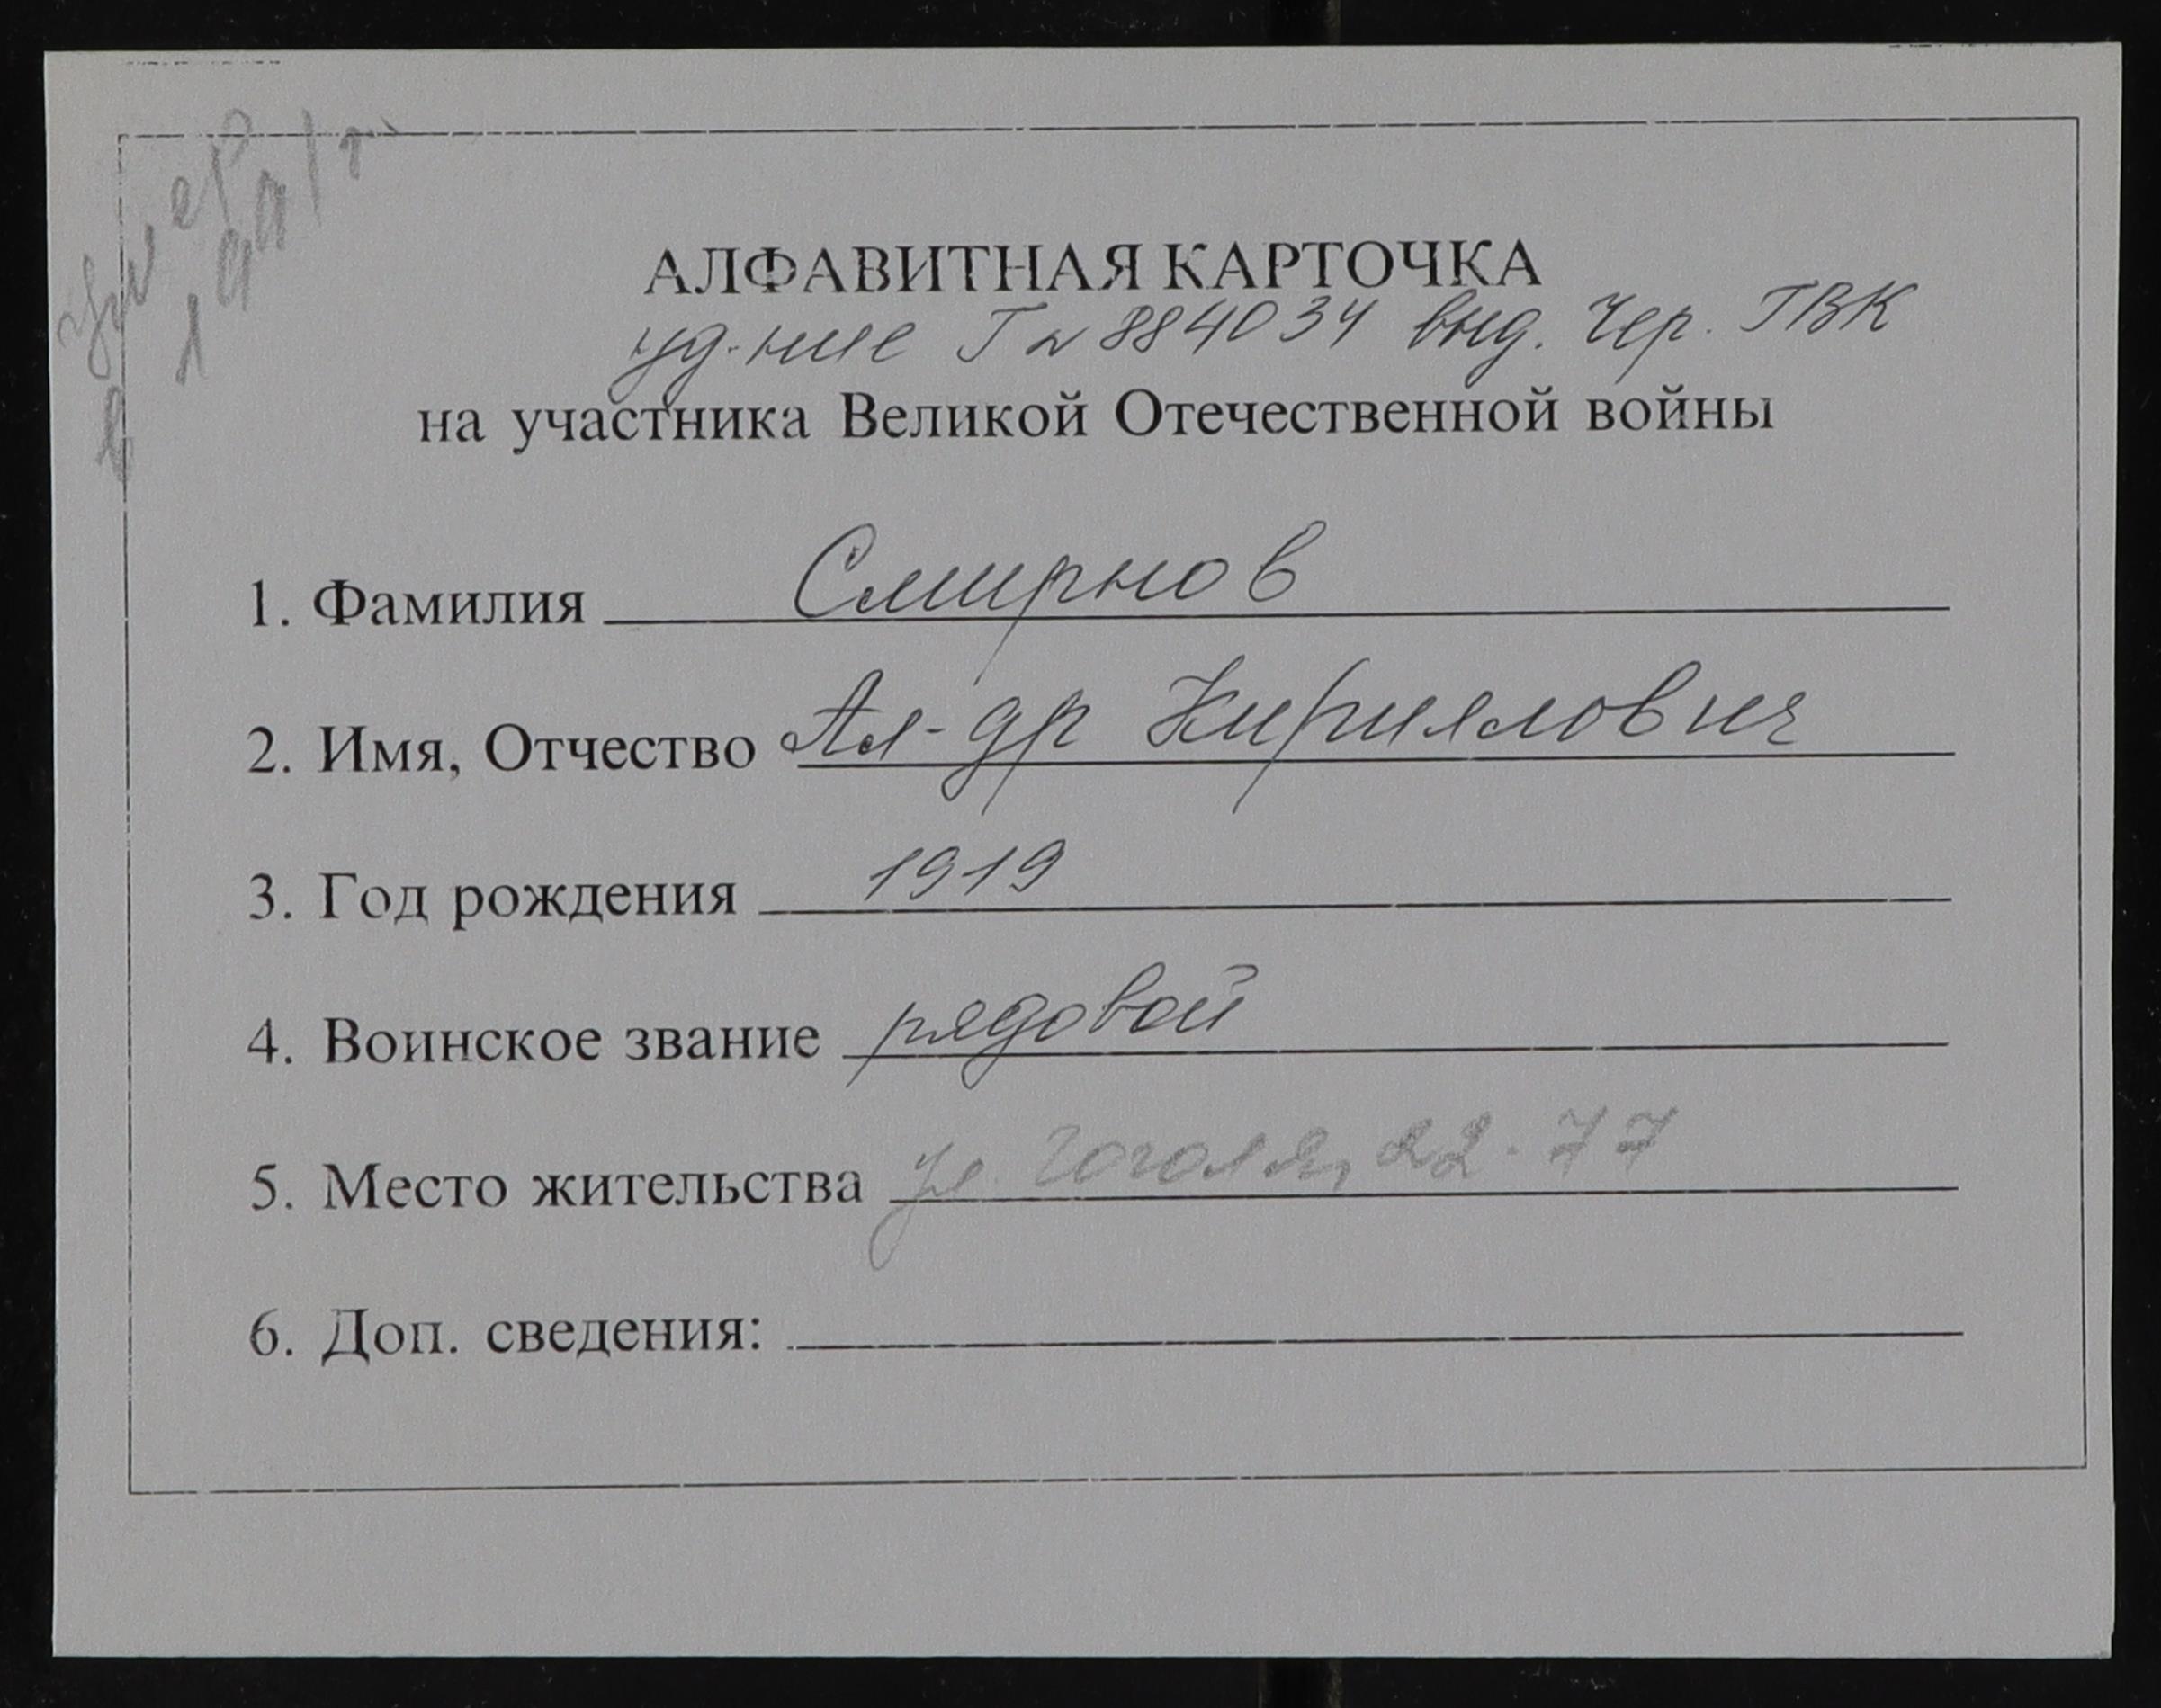 умер
в 1991 г.
АЛФАВИТНАЯ КАРТОЧКА
уд-ние Г № 884034 выд. Чер. ГВК
на участника Великой Отечественной войны
1. Фамилия Смирнов
2. Имя, Отчество Ал-др Кириллович
3. Год рождения 1919
4. Воинское звание рядовой
5. Место жительства ул. Гоголя, 22-77
6. Доп. сведения: